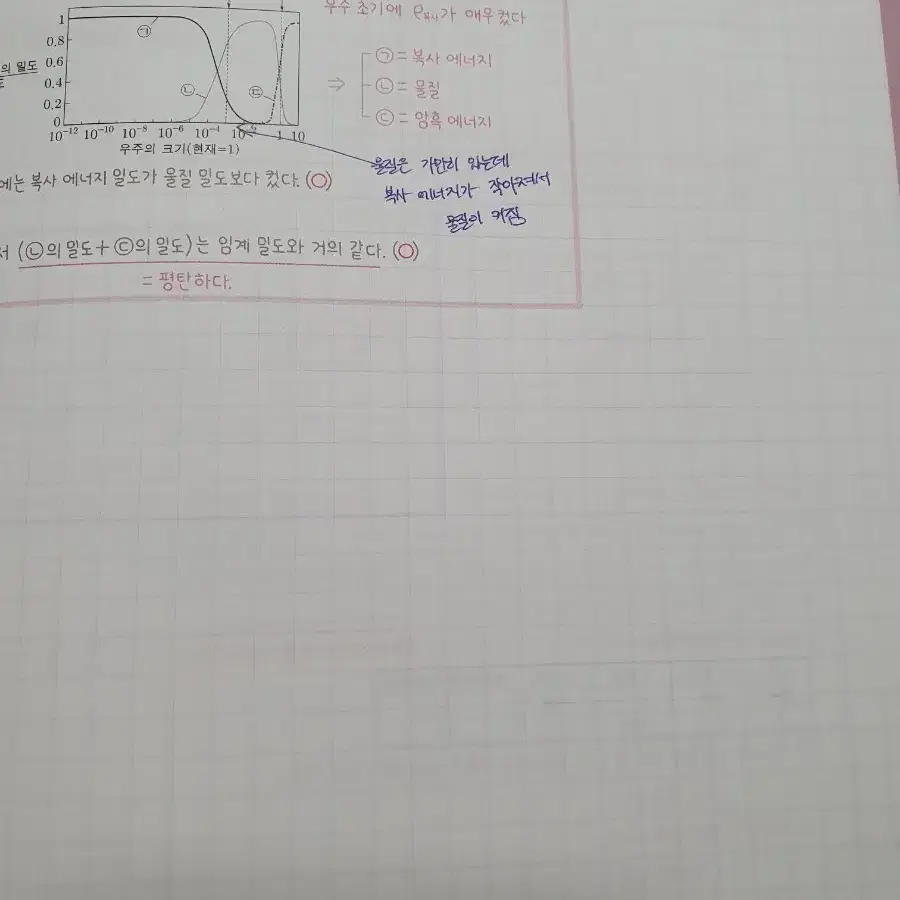 우주 초기에 ρ복사가 매우 컸다
1
0.8
의 밀도 0.6
0.4
0.2
0
㉠
㉡
㉢
10⁻¹² 10⁻¹⁰ 10⁻⁸ 10⁻⁶ 10⁻⁴ 10⁻² 1 10
우주의 크기(현재=1)
⇒ ㉠= 복사 에너지
㉡= 물질
㉢= 암흑 에너지
물질은 가만히 있는데
복사 에너지가 작아져서
물질이 커짐
에는 복사 에너지 밀도가 물질 밀도보다 컸다. (O)
서 (㉡의 밀도+㉢의 밀도)는 임계 밀도와 거의 같다. (O)
= 평탄하다.